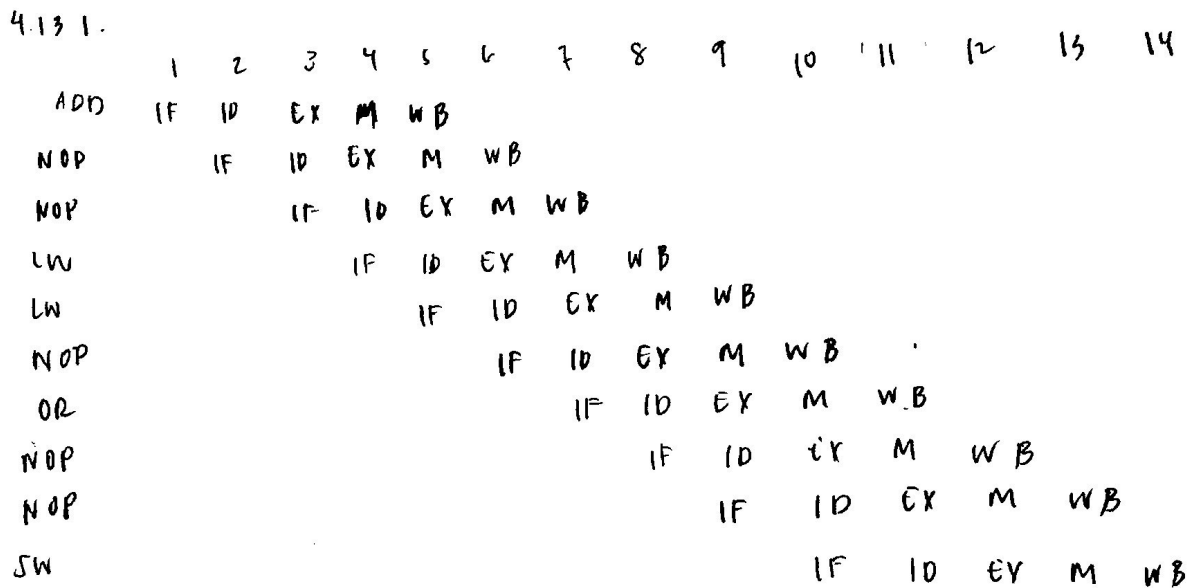 4.13 1.
1 2 3 4 5 6 7 8 9 10 11 12 13 14
ADD IF ID EX M WB
NOP IF ID EX M WB
NOP IF ID EX M WB
LW IF ID EX M WB
LW IF ID EX M WB
NOP IF ID EX M WB
OR IF ID EX M W.B
NOP IF ID EX M WB
NOP IF ID EX M WB
SW IF ID EX M WB